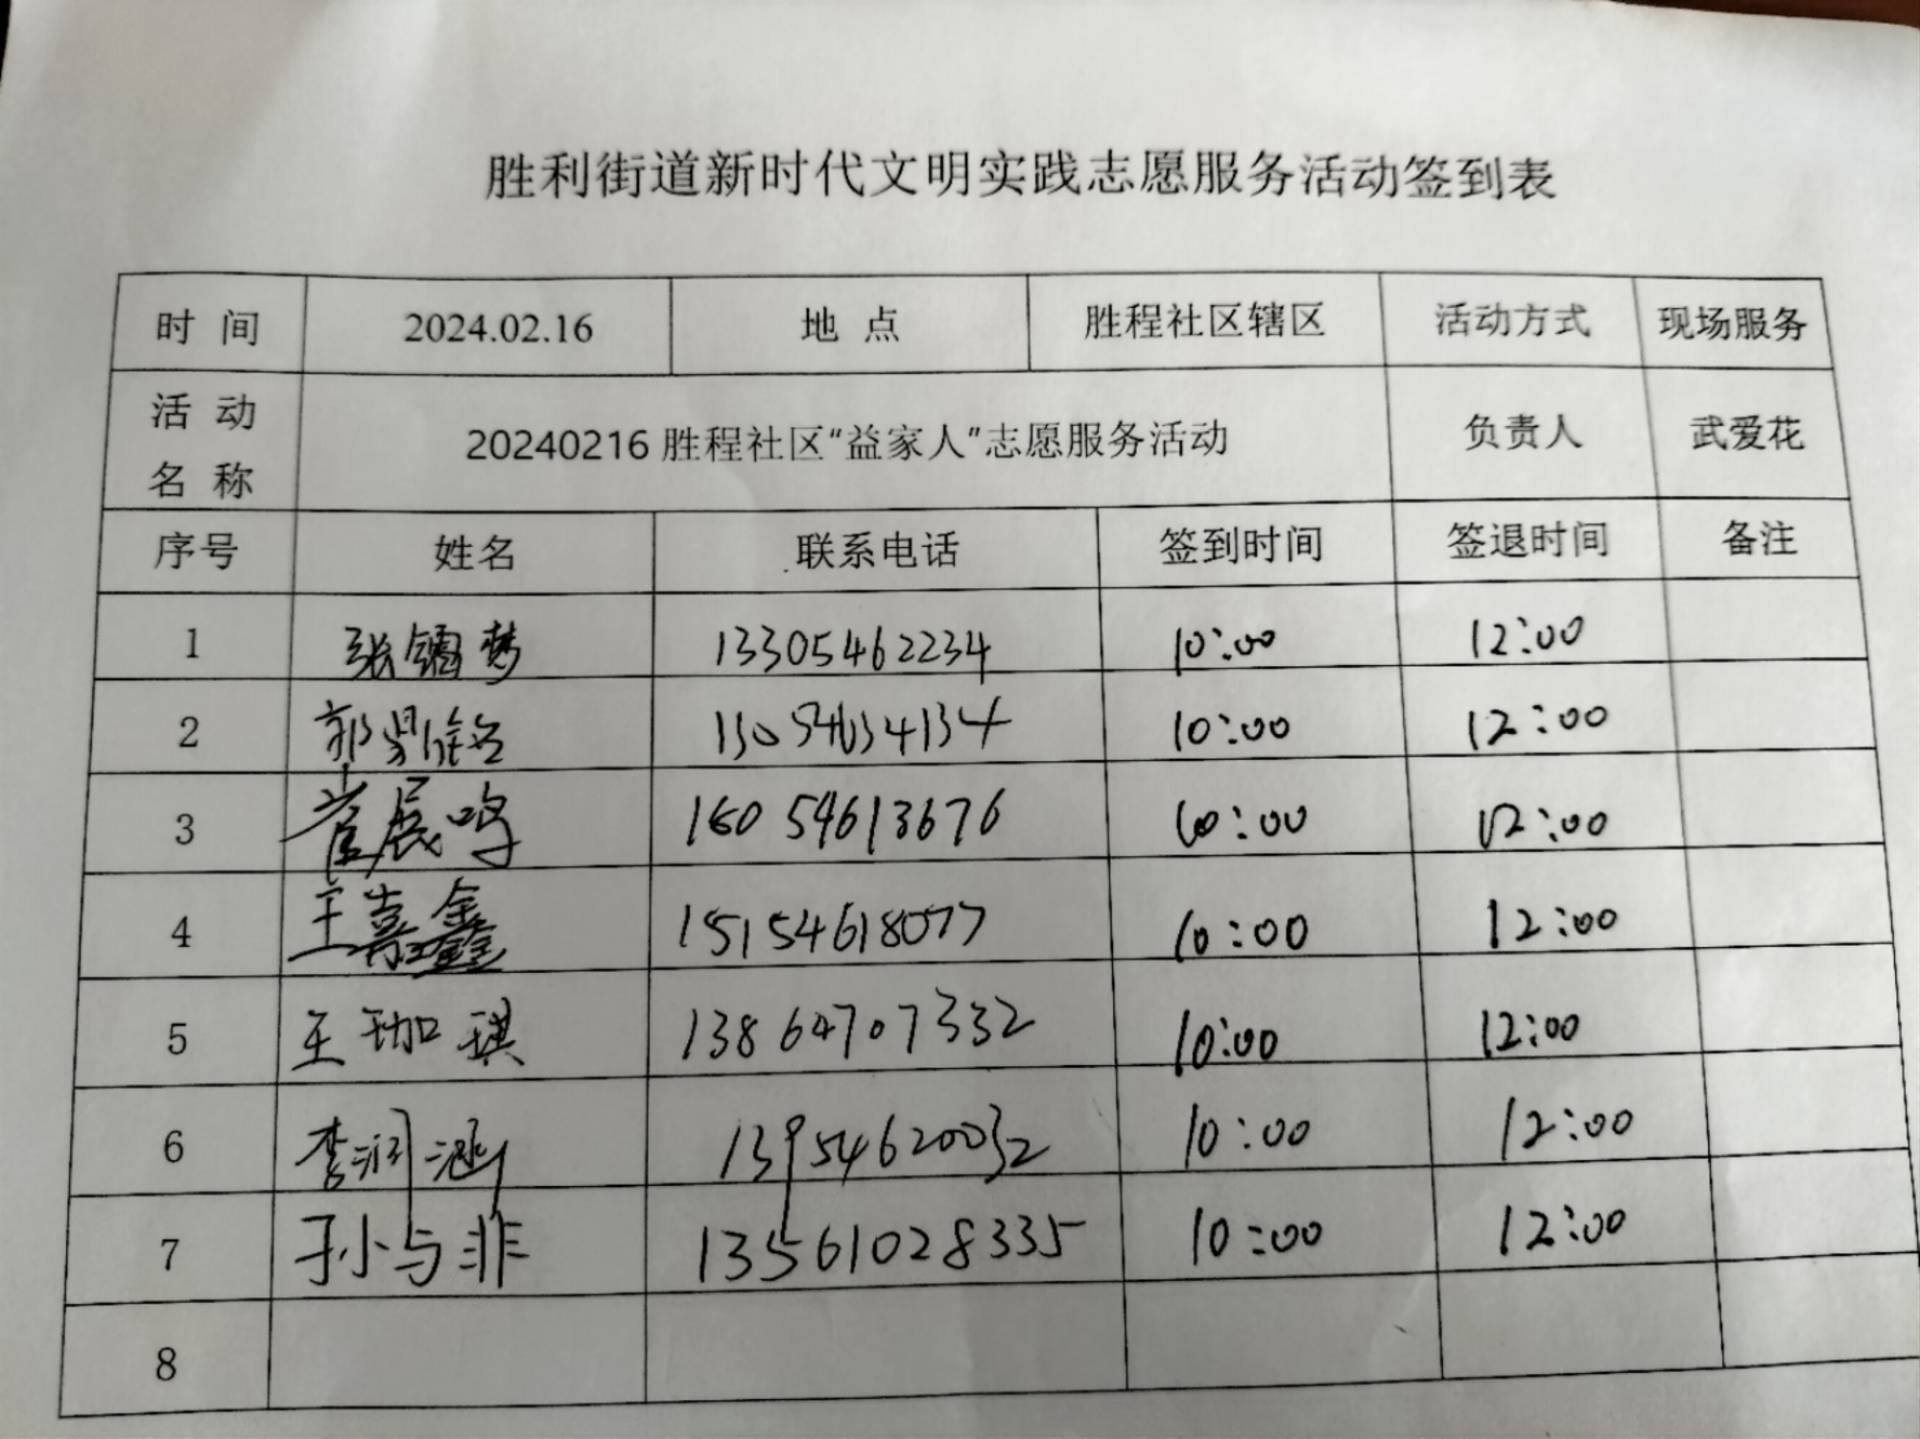 胜利街道新时代文明实践志愿服务活动签到表
时间 2024.02.16 地点 胜程社区辖区 活动方式 现场服务
活动名称 20240216胜程社区“益家人”志愿服务活动 负责人 武爱花
序号 姓名 联系电话 签到时间 签退时间 备注
1 张镭梦 13305462234 10:00 12:00
2 10:00 12:00
3 崔展鸣 15054613676 10:00 12:00
4 王嘉鑫 15154618077 10:00 12:00
5 王珈琪 13864707332 10:00 12:00
6 李润涵 13954620032 10:00 12:00
7 孙与非 13561028335 10:00 12:00
8